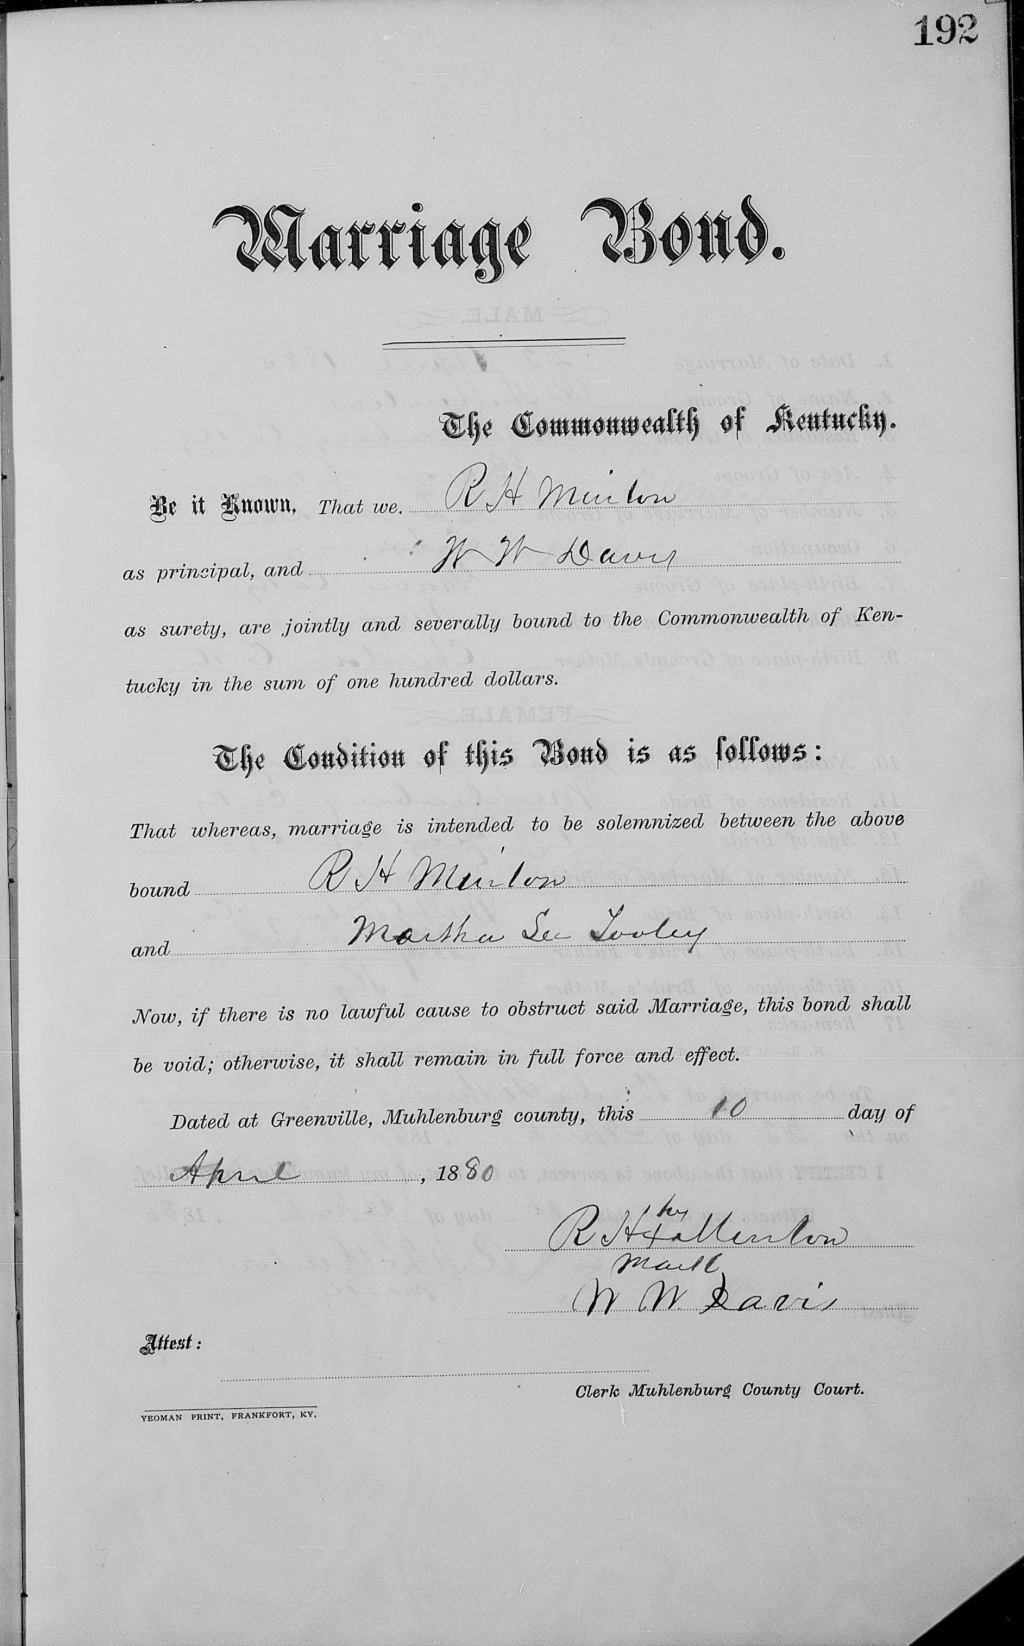 192
Marriage Bond.
The Commonwealth of Kentucky.
Be it Known, That we, R H Minton
as principal, and W W Davis
as surety, are jointly and severally bound to the Commonwealth of Ken-
tucky in the sum of one hundred dollars.
The Condition of this Bond is as follows:
That whereas, marriage is intended to be solemnized between the above
bound R H Minton
and Martha Tooley
Now, if there is no lawful cause to obstruct said Marriage, this bond shall
be void; otherwise, it shall remain in full force and effect.
Dated at Greenville, Muhlenburg county, this 10 day of
April, 1880
his
R H x Minton
mark
W W Davis
Attest:
Clerk Muhlenburg County Court.
YEOMAN PRINT, FRANKFORT, KY.